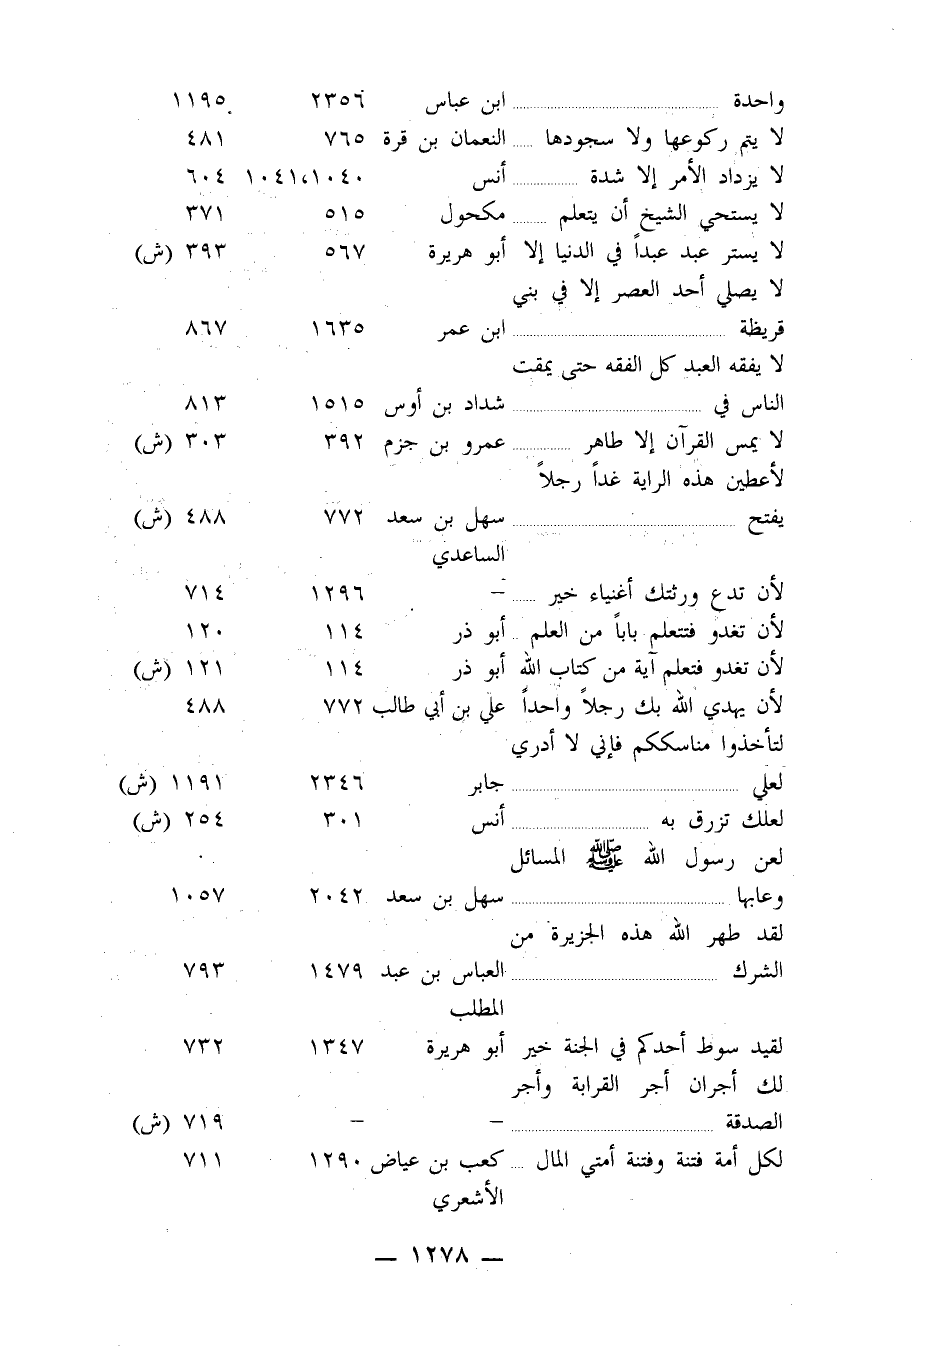 واحدة ........ ابن عباس ٢٣٥٦ ١١٩٥
لا يتم ركوعها ولا سجودها ..... النعمان بن قرة ٧٦٥ ٤٨١
لا يزداد الأمر إلا شدة ........ أنس ١٠٤١،١٠٤٠ ٦٠٤
لا يستحي الشيخ أن يتعلم ........ مكحول ٥١٥ ٣٧١
لا يستر عبد عبداً في الدنيا إلا أبو هريرة ٥٦٧ ٣٩٣ (ش)
لا يصلي أحد العصر إلا في بني
قريظة ........ ابن عمر ١٦٣٥ ٨٦٧
لا يفقه العبد كل الفقه حتى يمقت
الناس في ........ شداد بن أوس ١٥١٥ ٨١٣
لا يمس القرآن إلا طاهر ........ عمرو بن جزم ٣٩٢ ٣٠٣ (ش)
لأعطين هذه الراية غداً رجلاً
يفتح ........ سهل بن سعد ٧٧٢ ٤٨٨ (ش)
الساعدي
لأن تدع ورثتك أغنياء خير ..... – ١٢٩٦ ٧١٤
لأن تغدو فتتعلم باباً من العلم .. أبو ذر ١١٤ ١٢٠
لأن تغدو فتعلم آية من كتاب الله أبو ذر ١١٤ ١٢١ (ش)
لأن يهدي الله بك رجلاً واحداً علي بن أبي طالب ٧٧٢ ٤٨٨
لتأخذوا مناسككم فإني لا أدري
لعلي ........ جابر ٢٣٤٦ ١١٩١ (ش)
لعلك تزرق به ........ أنس ٣٠١ ٢٥٤ (ش)
لعن رسول الله ﷺ المسائل
وعابها ........ سهل بن سعد ٢٠٤٢ ١٠٥٧
لقد طهر الله هذه الجزيرة من
الشرك ........ العباس بن عبد ١٤٧٩ ٧٩٣
المطلب
لقيد سوط أحدكم في الجنة خير أبو هريرة ١٣٤٧ ٧٣٢
لك أجران أجر القرابة وأجر
الصدقة ........ – – ٧١٩ (ش)
لكل أمة فتنة وفتنة أمتي المال .... كعب بن عياض ١٢٩٠ ٧١١
الأشعري
— ١٢٧٨ —